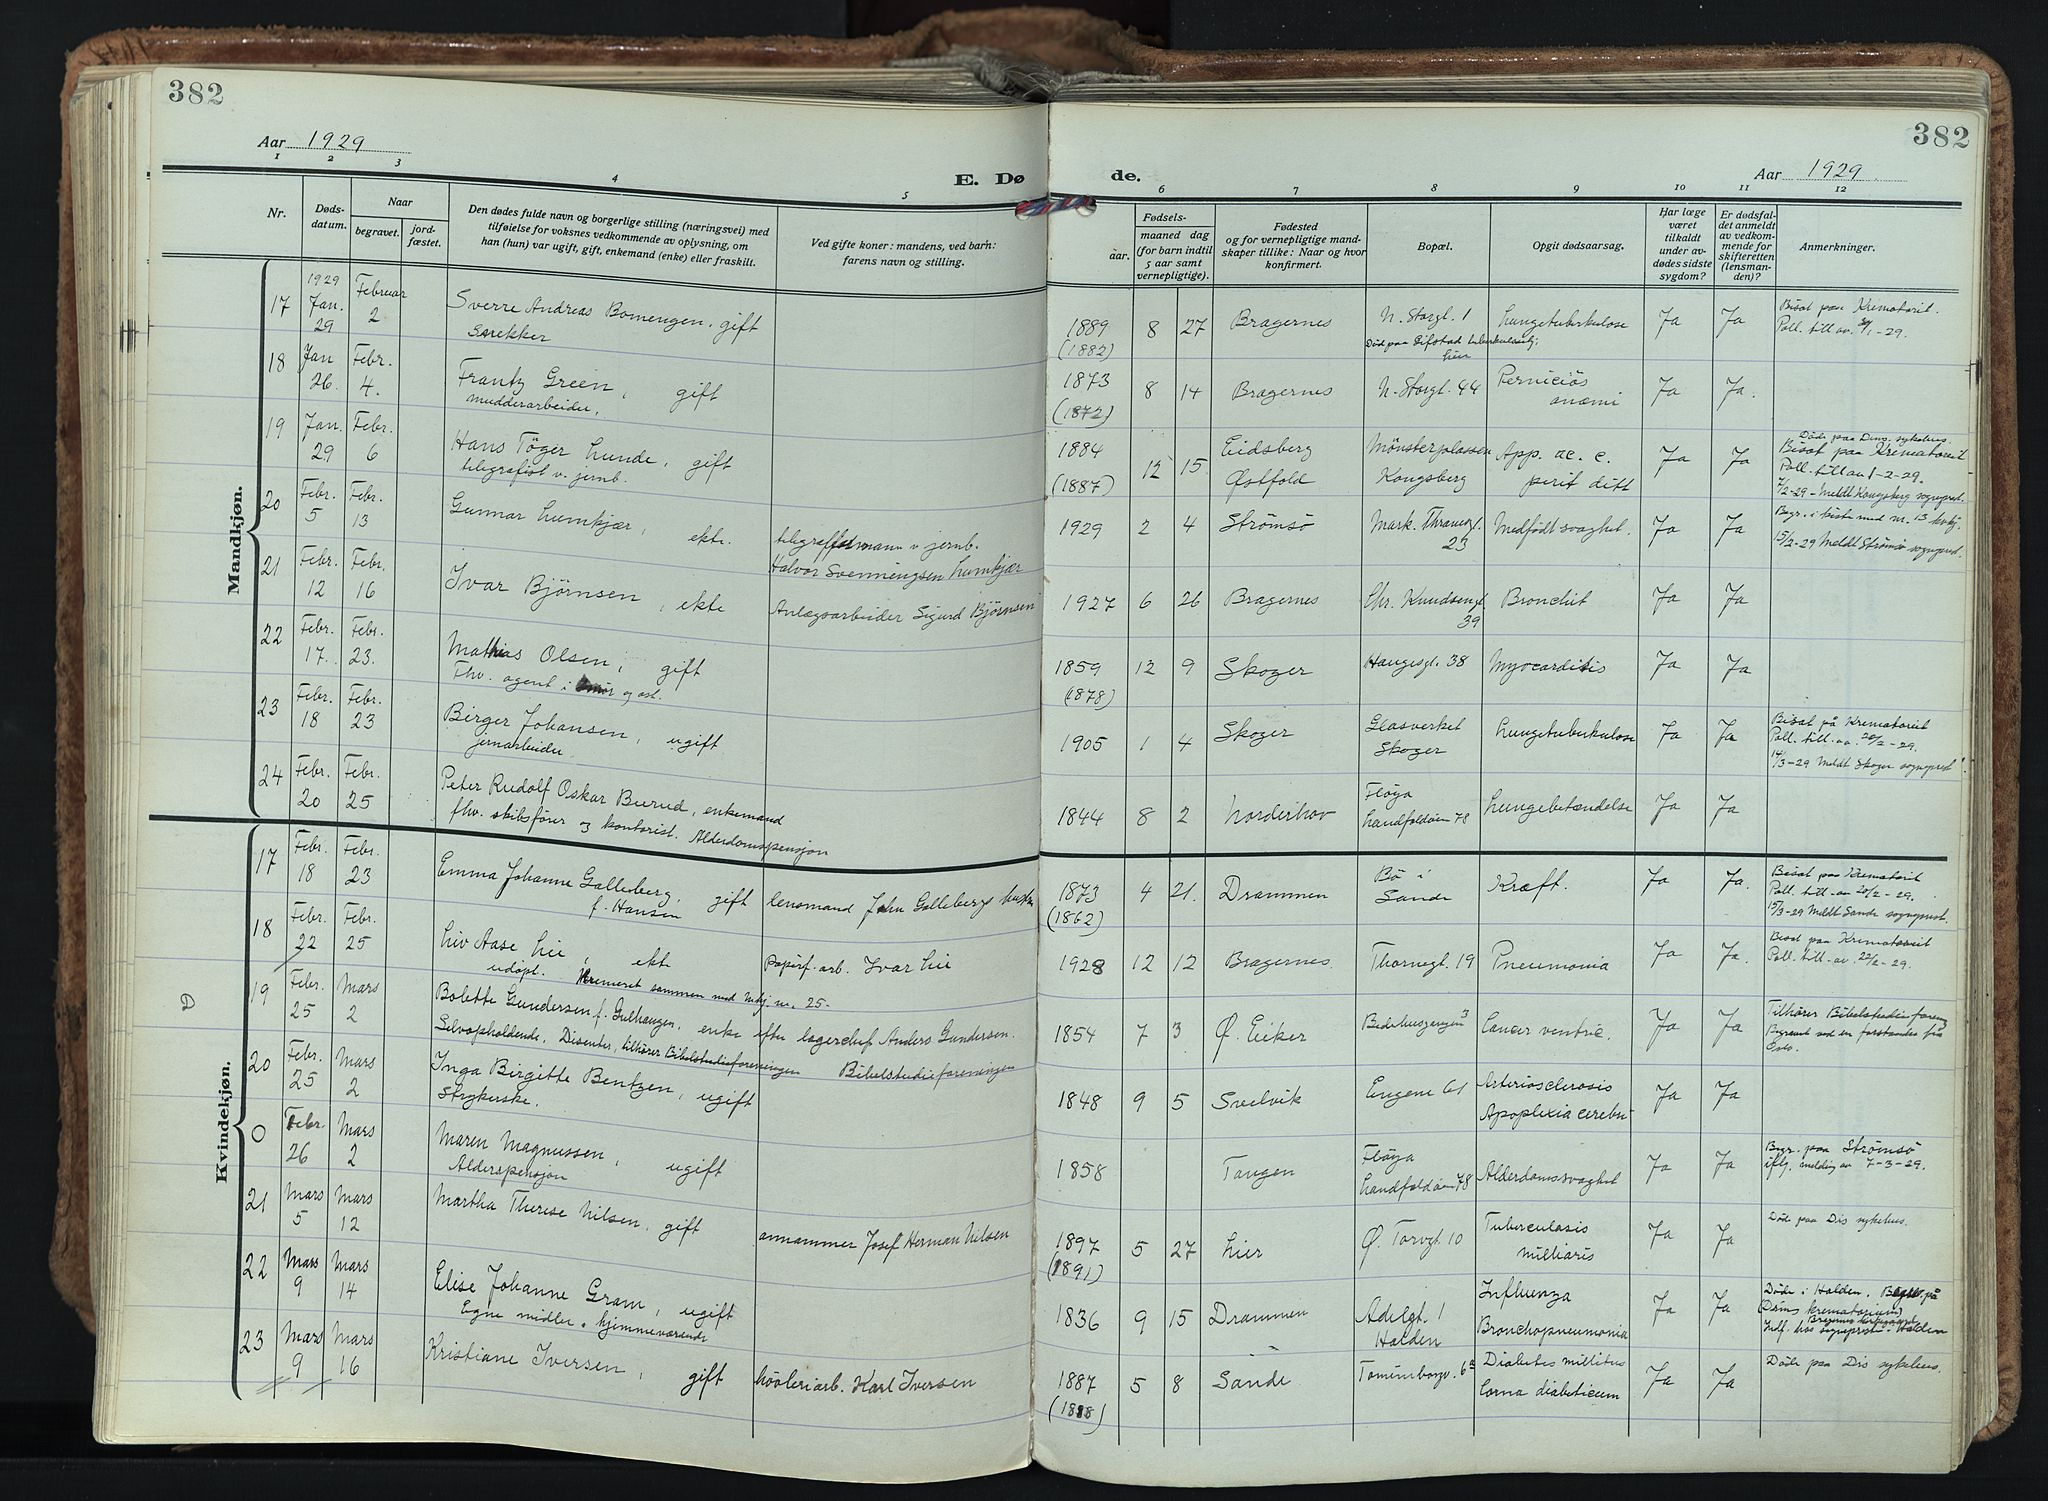 382
382
Aar 1929
E. Dø
de.
Aar 1929
1 2 3 4 5 6 7 8 9 10 11 12
Nr.
Døds-
datum.
Naar
begravet.
jord-
fæstet.
Den dødes fulde navn og borgerlige stilling (næringsvei) med
tilføielse for voksnes vedkommende av oplysning, om
han (hun) var ugift, gift, enkemand (enke) eller fraskilt.
Ved gifte koner: mandens, ved barn:
farens navn og stilling.
Fødsels-
aar.
maaned dag
(for barn indtil
5 aar samt
vernepligtige).
Fødested
og for vernepligtige mand-
skaper tillike: Naar og hvor
konfirmert.
Bopæl.
Opgit dødsaarsag.
Har læge
været
tilkaldt
under av-
dødes sidste
sygdom?
Er dødsfal-
det anmeldt
av vedkom-
mende for
skifteretten
(lensman-
den)?
Anmerkninger.
Mandkjøn.
17 1929 Jan. 29 Februar 2 Sverre Andreas Bomengen, gift
1889 (1882) 8 27 Bragernes N. Storgt. 1 Lungetuberkulose Ja Ja
Bisat paa Krematoriet.
18 Jan 26. Febr. 4. Frantz Green, gift
mudderarbeider.
1873 (1872) 8 14 Bragernes N. Storgt. 44 Perniciøs anæmi Ja Ja.
19 Jan. 29 Febr. 6 Hans Tøger Lunde, gift
telegrafist v. jernb.
1884 (1887) 12 15 Eidsberg Østfold Mønsterplassen Kongsberg App. ac. c. perit ditt Ja Ja
Døde paa Dms. sykehus.
Bisat paa Krematoriet
Poll. till av 1-2-29.
7/2-29 - Meldt Kongsberg sogneprest.
20 Febr. 5 Febr. 13 Gunnar Lumkjær, ekte.
telegrafformann v jernb.
Halvor Svenningsen Lumkjær
1929 2 4 Strømsø Mark. Thranesgt. 23 Medfødt svaghet. Ja Ja
Begr. i kiste med nr. 13 kvkj.
15/2-29 Meldt Strømsø sogneprest.
21 Febr. 12 Febr. 16 Ivar Bjørnsen, ekte Anlægsarbeider Sigurd Bjørnsen
1927 6 26 Bragernes Chr. Knudsengt. 39 Bronchit Ja Ja
22 Febr. 17. Febr. 23. Mathias Olsen, gift
Fhv. agent i smør og ost.
1859 (1878) 12 9 Skoger Haugesgt. 38 Myocarditis Ja Ja
23 Febr. 18 Febr. 23 Birger Johansen, ugift
jernarbeider
1905 1 4 Skoger Glasverket Skoger Lungetuberkulose Ja Ja
Bisat på Krematoriet
Poll. till. av. 20/2-29.
14/3-29 Meldt Skoger sogneprest
24 Febr. 20 Febr. 25 Peter Rudolf Oskar Burud, enkemand
fhv. skibsfører og kontorist. Alderdomspensjon
1844 8 2 Norderhov Fløya Landfaldøien 78 Lungebetændelse Ja Ja
Kvindekjøn.
17 Febr. 18 Febr. 23 Emma Johanne Galleberg, gift
f. Hansen
lensmand John Gallebergs hustru
1873 (1862) 4 21. Drammen Bø i Sande Kræft. Ja Ja.
Bisat paa Krematoriet
Poll. till. av 20/2-29.
15/3-29 Meldt Sande sogneprest.
18 Febr. 22 Febr. 25 Liv Aase Lie, ekte Papirf. arb. Ivar Lie
udøpt. Kremeret sammen med mkj. nr. 25-
1928 12 12 Bragernes. Thornegt. 19 Pneumonia Ja Ja.
Bisat paa Krematoriet
Poll. till. av. 22/2-29.
D
19 Febr. 25 Mars 2 Bolette Gundersen f. Gulhaugen, enke efter lagerchef Anders Gundersen.
Selvopholdende. Disenter, tilhører Bibelstudieforeningen Bibelstudieforeningen
1854 7 3 Ø. Eiker Bedehusgangen 3 Cancer ventric. Ja Ja
Tilhører Bibelstudieforening
Begravet ved en forstander fra
Oslo.
20 Febr. 25 Mars 2 Inga Birgitte Bentzen, ugift
Strykerske.
1848 9 5 Svelvik Engene 61 Arteriosclerosis Apoplexia cerebri Ja Ja
0 Febr. 26 Mars 2 Maren Magnussen, ugift
Alderspensjon
1858 Tangen Fløya Landfaldøien 78 Alderdomssvaghet Ja Ja
Begr. paa Strømsø
iflg. melding av 7-3-29.
21 Mars 5 Mars 12 Martha Therese Nilsen, gift annammer Josef Herman Nilsen
1897 (1891) 5 27 Lier Ø. Torvgt. 10 Tuberculosis milliaris Ja Ja
Døde paa Dis sykehus.
22 Mars 9 Mars 14 Elise Johanne Gram, ugift
Egne midler. hjemmeværende
1836 9 15 Drammen Adelgt. 1 Halden Influenza Bronchopneumonia Ja Ja
Døde i Halden. på
(Dms krematorium)
Indf. hos sogneprest i Halden
23 Mars 9 Mars 16 Kristiane Iversen, gift høvleriarb. Karl Iversen
1887 (1888) 5 8 Sande 6a Diabetes millitus Coma diabeticum Ja Ja
Døde paa Dis sykehus.